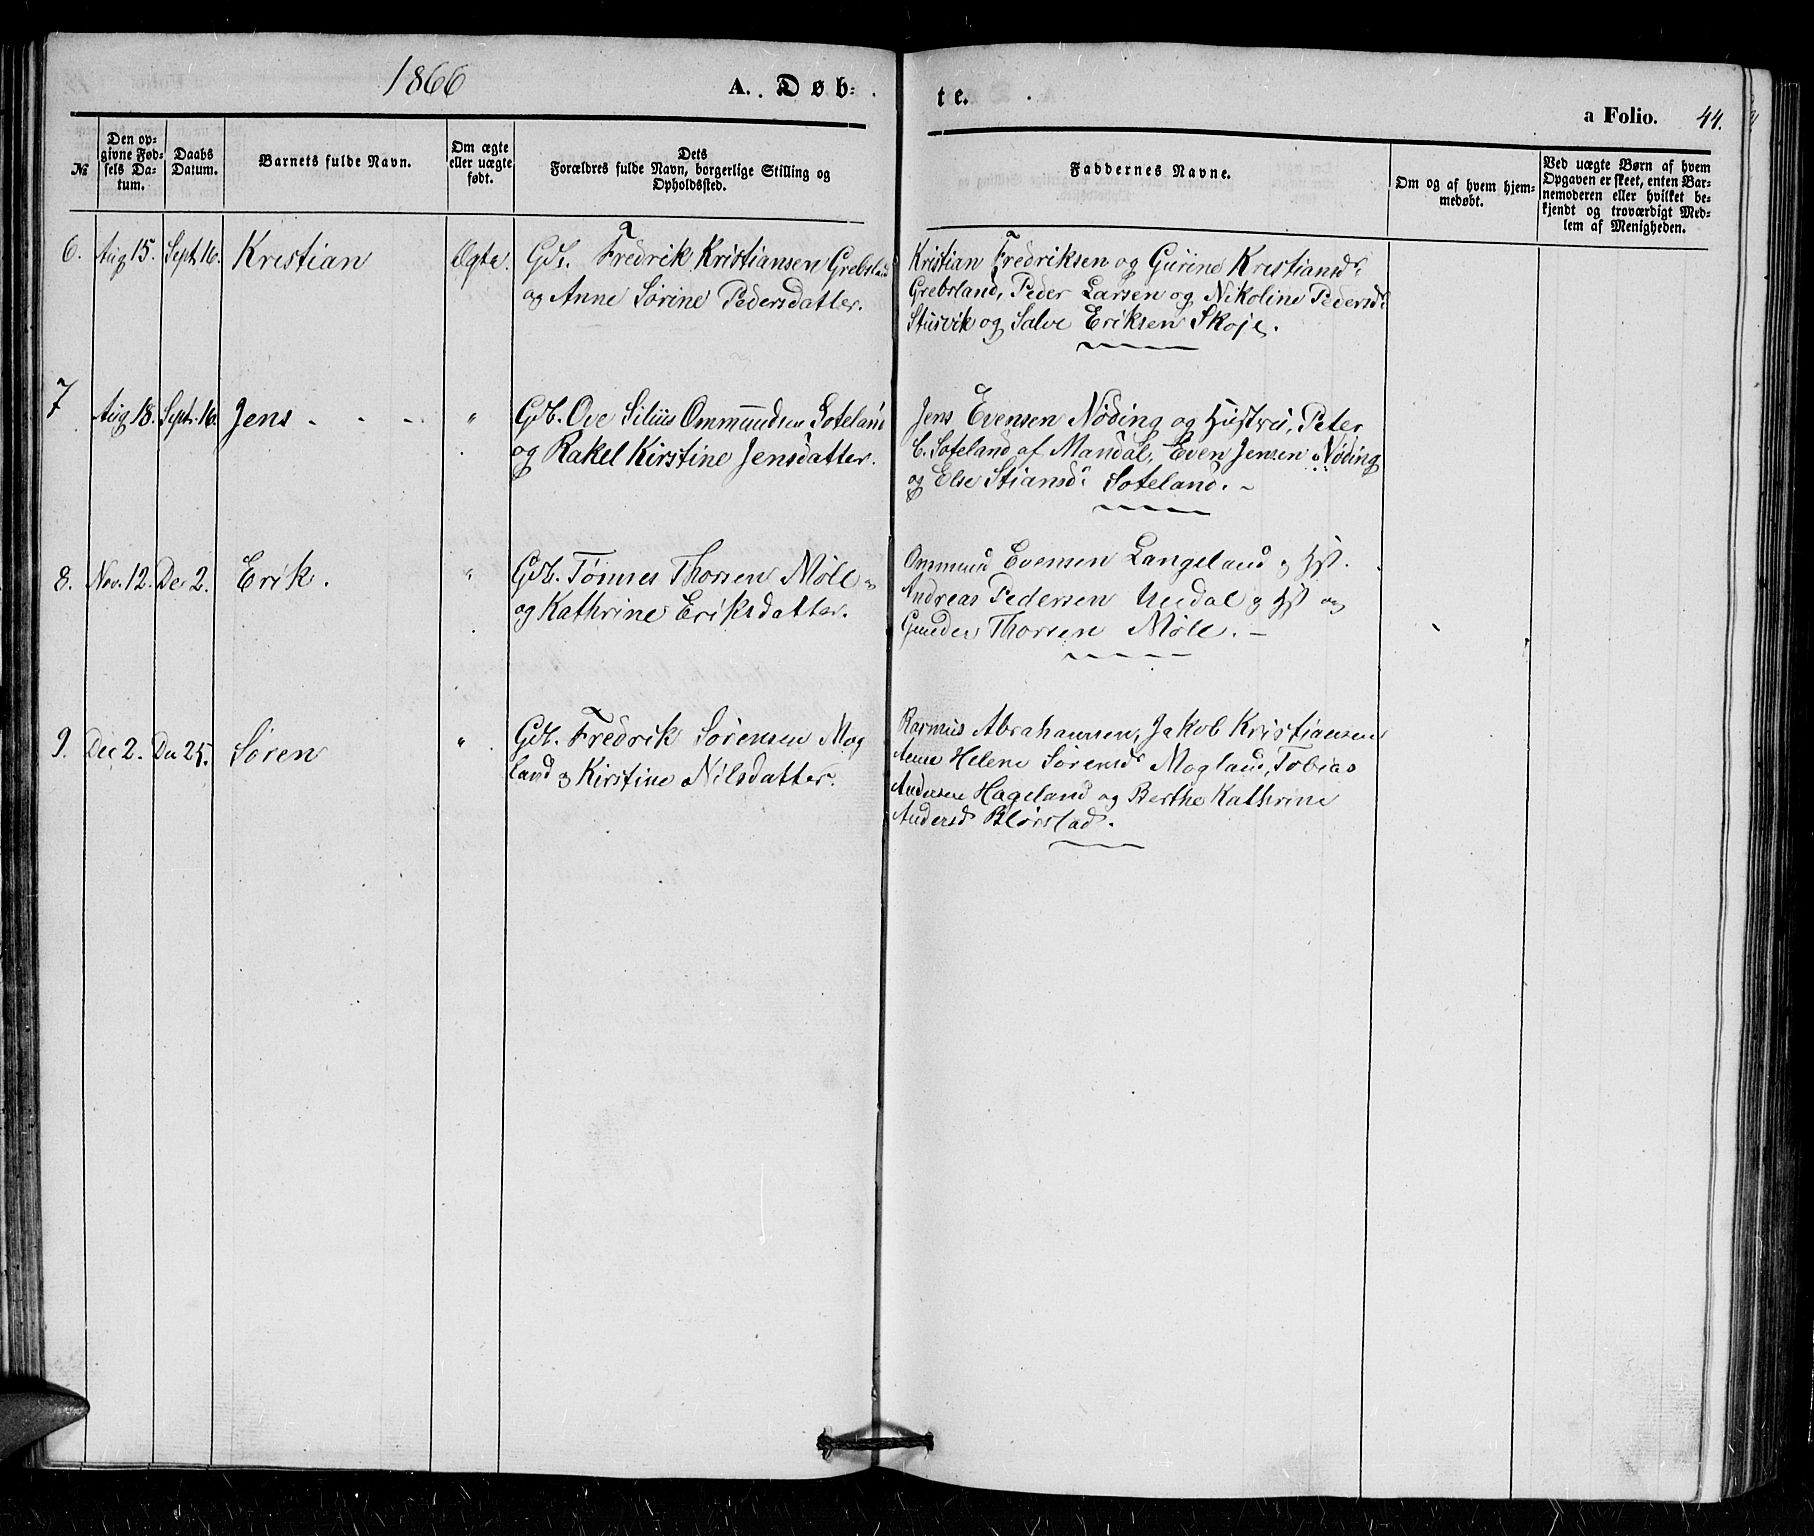 1866
A. Døb-
te.
a Folio. 44.
№
Den op-
givne Fød-
sels Da-
tum.
Daabs
Datum.
Barnets fulde Navn.
Om ægte
eller uægte
født.
Dets
Forældres fulde Navn, borgerlige Stilling og
Opholdssted.
Faddernes Navne.
Om og af hvem hjem-
medøbt.
Ved uægte Børn af hvem
Opgaven er skeet, enten Bar-
nemoderen eller hvilket be-
kjendt og troværdigt Med-
lem af Menigheden.
6. Aug 15. Sept. 16. Kristian Ægte. Gdb. Fredrik Kristiansen Grebsland
og Anne Sørine Pedersdatter.
Kristian Fredriksen og Gurine Kristiansd.
Grebsland, Peder Larsen og Nikoline Pedersd.
Stusvik og Salve Eriksen Skoje.
7 Aug 18. Sept. 16. Jens - - - " Gdb. Ove Silius Ommundsen Soteland
og Rakel Kirstine Jensdatter.
Jens Evensen Nøding og Hustru, Peter
C. Soteland af Mandal, Even Jensen Nøding
og Else Stiansd. Soteland. -
8. Nov. 12. Dec 2. Erik. " Gdb. Tønnes Thorsen Møll -
og Kathrine Eriksdatter.
Ommund Evensen Langeland og Hst.
Andreas Pedersen Uedal og Hst og
Gunder Thorsen Møll. -
9. Dec 2. Dec 25. Søren " Gdb. Fredrik Sørensen Mog
land og Kirstine Nilsdatter.
Rasmus Abrahamsen, Jakob Kristiansen
Anne Helene Sørensd Mogland, Tobias
Andersen Hageland og Berthe Kathrine
Andersd Blørstad.